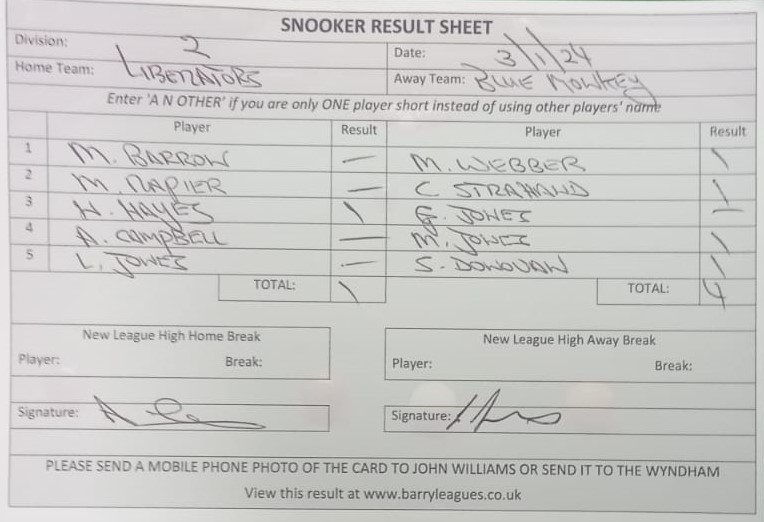 SNOOKER RESULT SHEET
Division: 2 Date: 3/1/24
Home Team: LIBERATORS Away Team: BLUE MONKEY
Enter 'A N OTHER' if you are only ONE player short instead of using other players' name
Player Result Player Result
1 M. BARROW — M. WEBBER 1
2 M. NAPIER — C. STRAHAND 1
3 N. HAYES 1 G. JONES —
4 A. CAMPBELL — M. JONES 1
5 L. JONES — S. DONOVAN 1
TOTAL: 1 TOTAL: 4
New League High Home Break New League High Away Break
Player: Break: Player: Break:
Signature: Signature:
PLEASE SEND A MOBILE PHONE PHOTO OF THE CARD TO JOHN WILLIAMS OR SEND IT TO THE WYNDHAM
View this result at www.barryleagues.co.uk